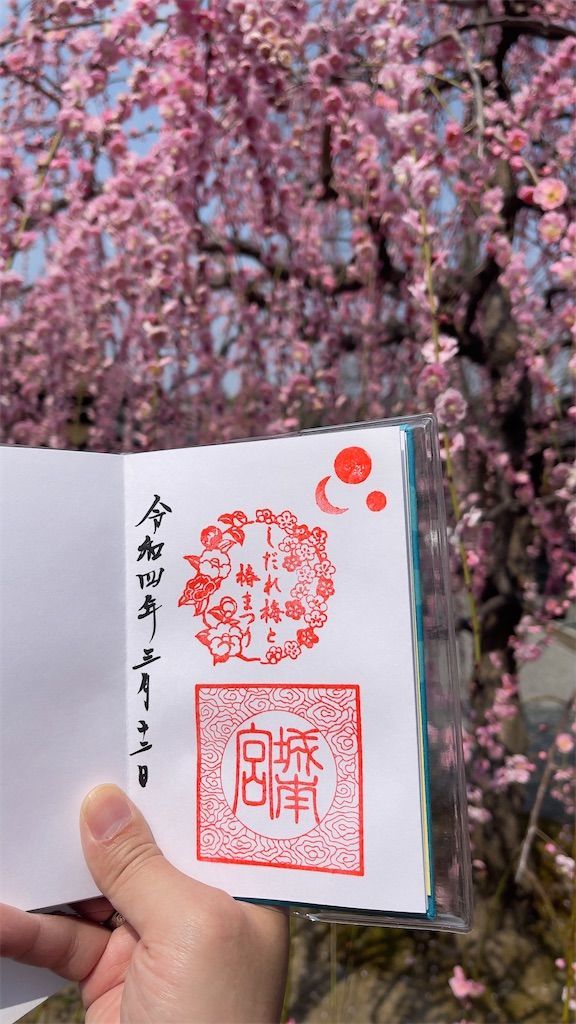 しだれ梅と
椿まつり
城南
宮
令和四年三月十二日